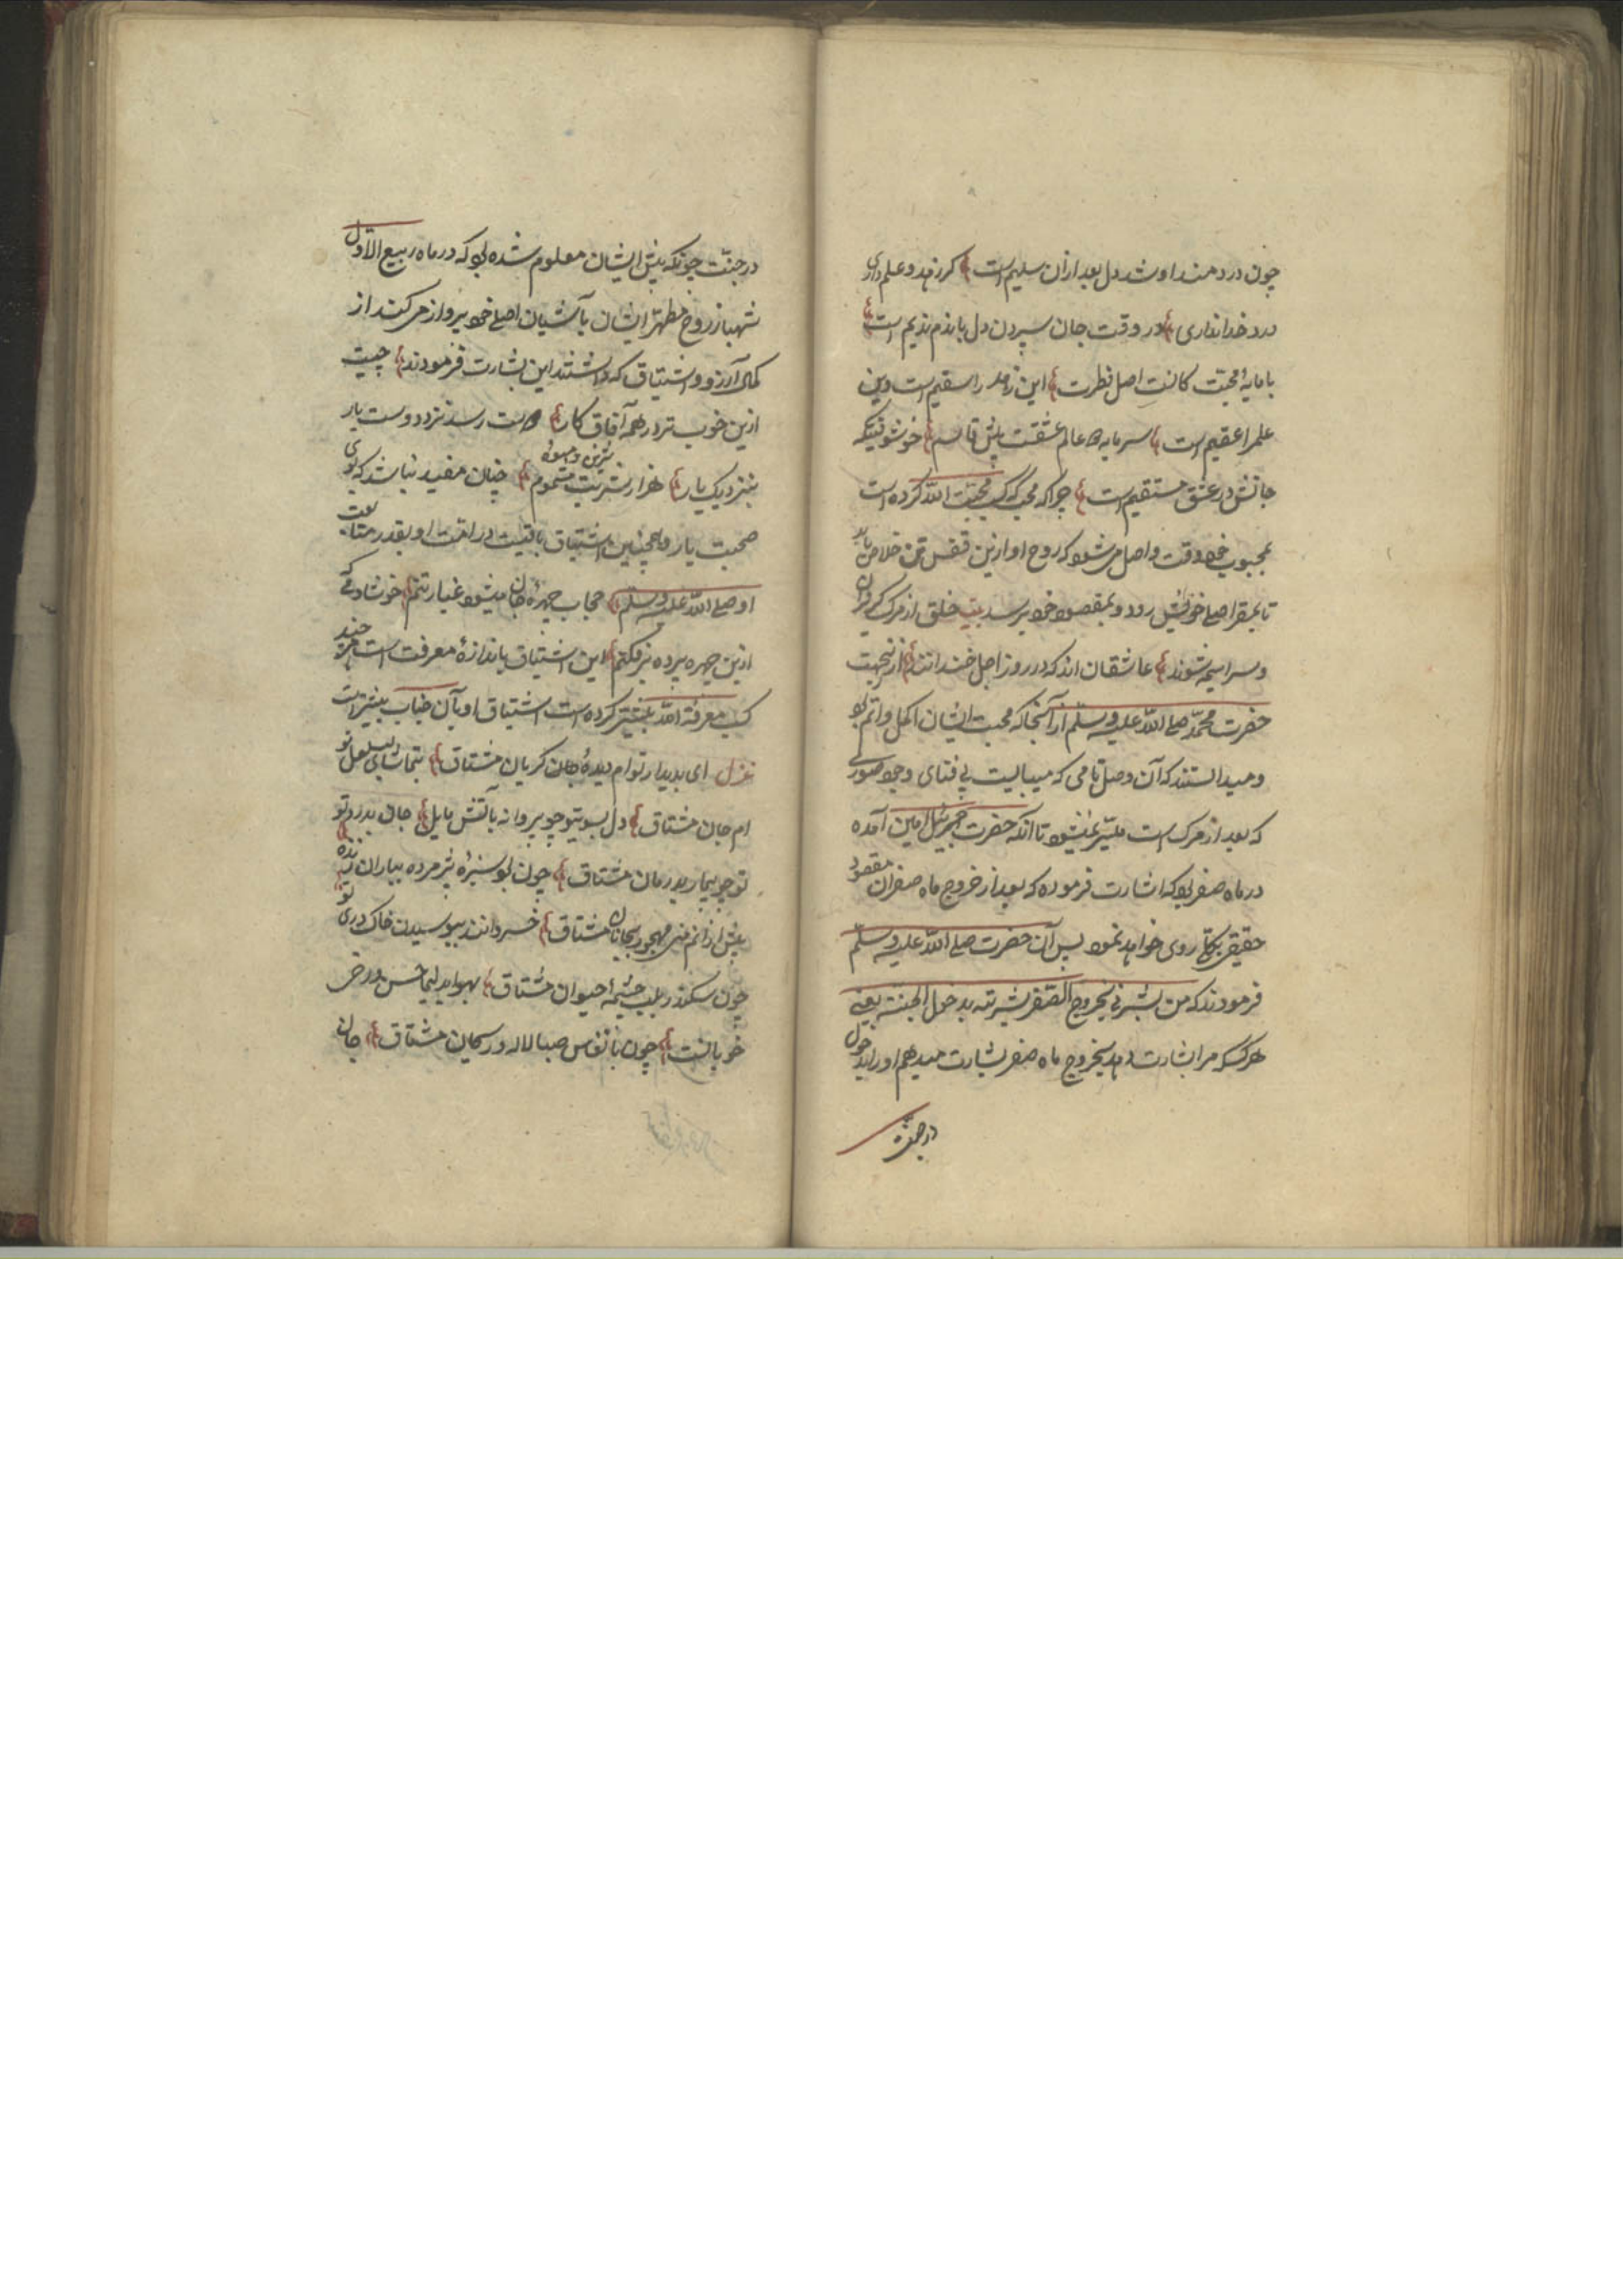 چون دردمند او شد دل بعد ازان سلیم است کر زهد و علم داری
درد خدا نداری در وقت جان سپردن دل با ندم ندیم است
با مایهٔ محبت کانتِ اصل فطرت این زهد را سقیم است وین
علم را عقیم است سرمایه عالم عشقست پیش قاسم خوشوقت آنکه
جانش در عشق مستقیم است چرا که محب که کسب محبّت اللّه کرده است
بمحبوب خود وقت واصل می شود که روح او ازین قفس تن خلاص یابد
تا بمقر اصلی خویش رود و بمقصود خود برسد بیت خلق از مرک کریزان
و سراسیمه شوند عاشقان اند که در روز اجل خندانند ازینجهت
حضرت محمّد صلی اللّه علیه وسلّم از آنجا که محبت ایشان اکمل و اتم بود
و میدانستند که آن وصل تامی که میبایست بی فنای وجود صوری
که بعد از مرک است میسّر نمیشود تا انکه حضرت جبرئیل امین آمده
در ماه صفر بود که اشارت فرموده که بعد از خروج ماه صفر ان مقصود
حقیقی بکلی روی خواهد نمود پس آن حضرت صلی اللّه علیه وسلّم
فرمودند که من بشّرنی بخروج الصّفر بشرته بدخول الجنّة یعنی
هر کسکه مرا بشارت دهد بخروج ماه صفر بشارت میدهم او را بدخول
در جنّت
در جنّت چونکه پیش ایشان معلوم شده بود که در ماه ربیع الاوّل
شهباز روح مطهّر ایشان بآشیان اصلی خود پرواز می کند از
کمال آرزو و اشتیاق که داشتند این بشارت فرمودند چیست
ازین خوب تر در همه آفاق کار دوست رسد نزد دوست یار
بنزدیک یار هزار شربت شیرین و میوهٔ مشموم چنان مفید نباشد که بوی
صحبت یار و همچنین اشتیاق باقیست در امّت او بقدر متابعت
او صلی اللّه علیه وسلّم حجاب چهرهٔ جان میشود غبار تنم خوشا دمی که
ازین چهره پرده برفکنم این اشتیاق باندازهٔ معرفت است هر چند
کسب معرفة اللّه بیشتر کرده است اشتیاق او بآن جناب بیشتر است
غزل ای بدیدار توام دیدهٔ کریان مشتاق بتماشای لب لعل تو
ام جان مشتاق دل بسوی تو چو پروانه بآتش مایل جان بدرد تو
تو چو بیمار بدرمان مشتاق چون بود سبزهٔ پژمرده بباران زنده
بیش ازانم من مهجور بجانان مشتاق خسروانند ببوسیدن خاک در تو
چون سکندر بلب چشمهٔ حیوان مشتاق
خوبانست چون بانفاس صبا لاله و ریحان مشتاق جان